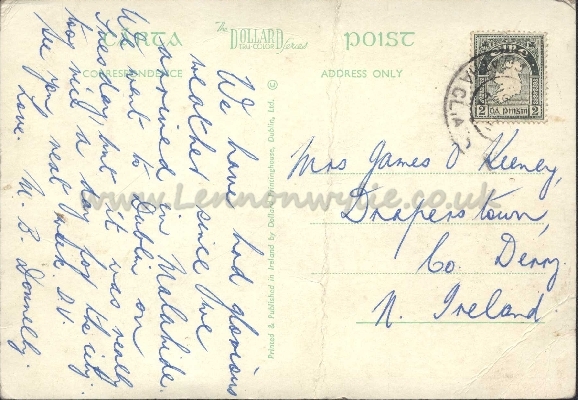 CARTA POIST
The DOLLARD TRU-COLOR Series
CORRESPONDENCE
ADDRESS ONLY
We have had glorious
weather since we
arrived in Malahide.
We went to Dublin on
Tuesday but it was really
too nice a day for the city.
See you next week D.V.
Love. M. B. Donnelly.
Printed & Published in Ireland by Dollard Printinghouse, Dublin, Ltd. ©
2 DÁ PINGIN 2
Mrs James O Keeney,
Draperstown,
Co. Derry.
N. Ireland
www.Lennonwylie.co.uk